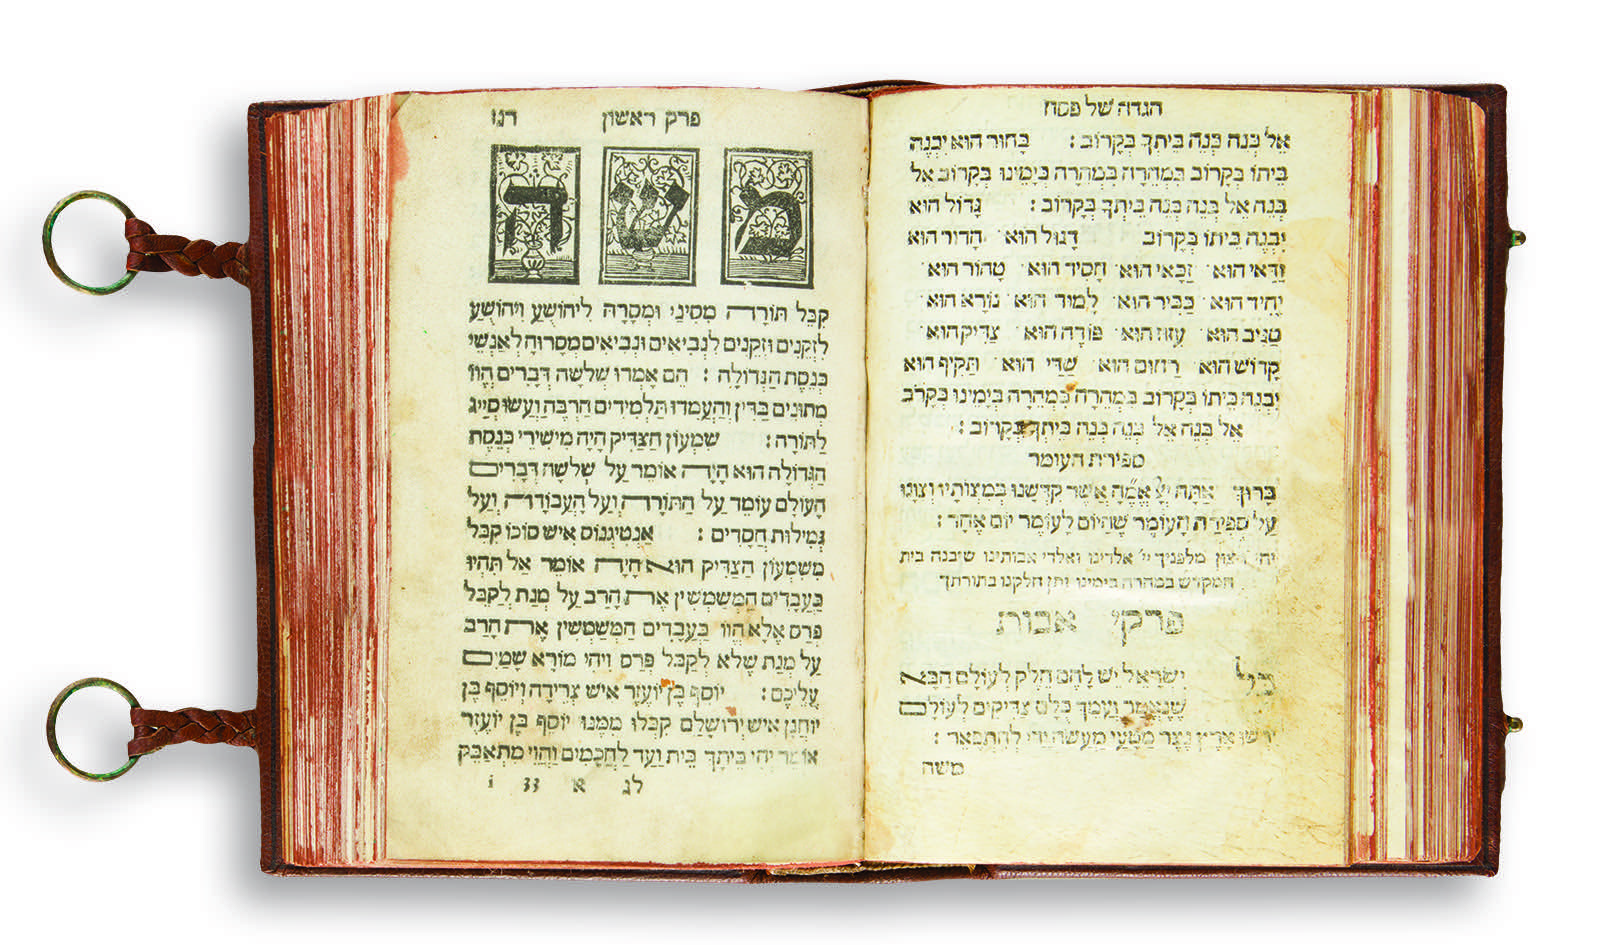 הגדה של פסח
אֵל בְּנֵה בְּנֵה בֵּיתְךָ בְּקָרוֹב : בָּחוּר הוּא יִבְנֶה
בֵּיתוֹ בְּקָרוֹב בִּמְהֵרָה בִּמְהֵרָה בְּיָמֵינוּ בְּקָרוֹב אֵל
בְּנֵה אֵל בְּנֵה בְּנֵה בֵּיתְךָ בְּקָרוֹב : גָּדוֹל הוּא
יִבְנֶה בֵּיתוֹ בְּקָרוֹב דָּגוּל הוּא הָדוּר הוּא
וַדַּאי הוּא זַכַּאי הוּא חָסִיד הוּא טָהוֹר הוּא
יָחִיד הוּא כַּבִּיר הוּא לָמוּד הוּא נוֹרָא הוּא
סַגִּיב הוּא עִזּוּז הוּא פּוֹדֶה הוּא צַדִּיק הוּא
קָדוֹשׁ הוּא רַחוּם הוּא שַׁדַּי הוּא תַּקִּיף הוּא
יִבְנֶה בֵּיתוֹ בְּקָרוֹב בִּמְהֵרָה בִּמְהֵרָה בְּיָמֵינוּ בְּקָרֹב
אֵל בְּנֵה אֵל בְּנֵה בְּנֵה בֵּיתְךָ בְּקָרוֹב :
ספירת העומר
בָּרוּךְ אַתָּה יְיָ אֱמֶ״הָ אֲשֶׁר קִדְּשָׁנוּ בְּמִצְוֹתָיו וְצִוָּנוּ
עַל סְפִירַת הָעוֹמֶר שֶׁהַיּוֹם לָעוֹמֶר יוֹם אֶחָד :
יהי רצון מלפניך יי׳ אלהינו ואלהי אבותינו שיבנה בית
המקדש במהרה בימינו ותן חלקנו בתורתך
פרקי אבות
כָּל יִשְׂרָאֵל יֵשׁ לָהֶם חֵלֶק לְעוֹלָם הַבָּא
שֶׁנֶּאֱמַר וְעַמֵּךְ כֻּלָּם צַדִּיקִים לְעוֹלָם
יִרְשׁוּ אָרֶץ נֵצֶר מַטָּעַי מַעֲשֵׂה יָדַי לְהִתְפָּאֵר :
משה
פרק ראשון רנז
מֹשֶׁה
קִבֵּל תּוֹרָה מִסִּינַי וּמְסָרָהּ לִיהוֹשֻׁעַ וִיהוֹשֻׁעַ
לִזְקֵנִים וּזְקֵנִים לִנְבִיאִים וּנְבִיאִים מְסָרוּהָ לְאַנְשֵׁי
כְּנֶסֶת הַגְּדוֹלָה : הֵם אָמְרוּ שְׁלֹשָׁה דְּבָרִים הֱווּ
מְתוּנִים בַּדִּין וְהַעֲמִדוּ תַּלְמִידִים הַרְבֵּה וַעֲשׂוּ סְיָיג
לַתּוֹרָה : שִׁמְעוֹן הַצַּדִּיק הָיָה מִשִּׁירֵי כְּנֶסֶת
הַגְּדוֹלָה הוּא הָיָה אוֹמֵר עַל שְׁלֹשָׁה דְּבָרִים
הָעוֹלָם עוֹמֵד עַל הַתּוֹרָה וְעַל הָעֲבוֹדָה וְעַל
גְּמִילוּת חֲסָדִים : אַנְטִיגְנוֹס אִישׁ סוֹכוֹ קִבֵּל
מִשִּׁמְעוֹן הַצַּדִּיק הוּא הָיָה אוֹמֵר אַל תִּהְיוּ
כַּעֲבָדִים הַמְשַׁמְּשִׁין אֶת הָרַב עַל מְנָת לְקַבֵּל
פְּרָס אֶלָּא הֱווּ כַּעֲבָדִים הַמְשַׁמְּשִׁין אֶת הָרַב
עַל מְנָת שֶׁלֹּא לְקַבֵּל פְּרָס וִיהִי מוֹרָא שָׁמַיִם
עֲלֵיכֶם : יוֹסֵף בֶּן יוֹעֶזֶר אִישׁ צְרֵידָה וְיוֹסֵף בֶּן
יוֹחָנָן אִישׁ יְרוּשָׁלַםִ קִבְּלוּ מִמֶּנּוּ יוֹסֵף בֶּן יוֹעֶזֶר
אוֹמֵר יְהִי בֵיתְךָ בֵּית וַעַד לַחֲכָמִים וֶהֱוֵי מִתְאַבֵּק
לג א 33 i